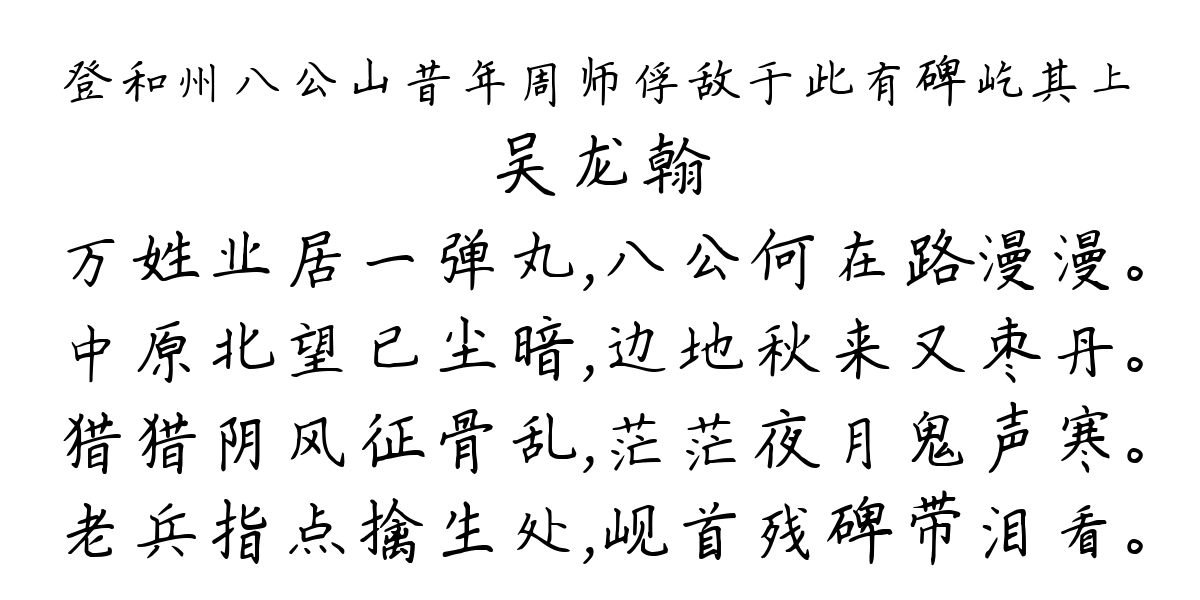 登和州八公山昔年周师俘敌于此有碑屹其上
吴龙翰
万姓业居一弹丸,八公何在路漫漫。
中原北望已尘暗,边地秋来又枣丹。
猎猎阴风征骨乱,茫茫夜月鬼声寒。
老兵指点擒生处,岘首残碑带泪看。